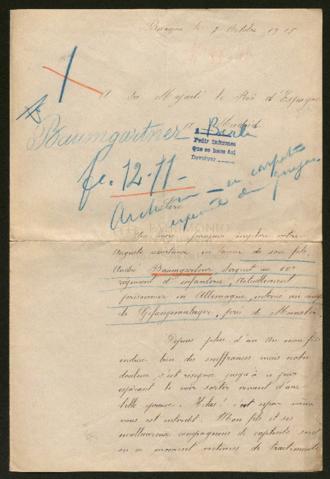 le 7 Octobre 1915
A Sa Majesté le Roi d'Espagne
Madrid
Baumgartner Berlin
Pedir informes
Que se hace Aul
Devolver
fe. 12-11-
Archivese en carpeta
Un père français implore votre
Auguste assistance en faveur de son fils
André Baumgartner Sergent au 60e
régiment d'infanterie, actuellement
prisonnier en Allemagne, interné au camp
de Gefangenenlager, près de Munster.
Depuis plus d'un an mon fils
endure bien des souffrances mais notre
douleur s'est résignée jusqu'à ce jour
espérant le voir sortir vivant d'une
telle épreuve. Hélas! cet espoir même
nous est interdit. Mon fils et ses
malheureux compagnons de captivité sont
en ce moment victimes de traitements